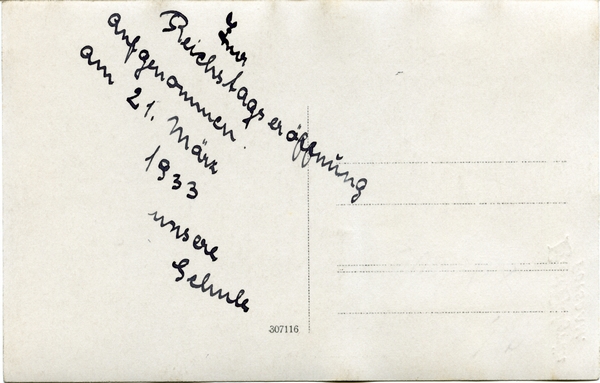 Zur
Reichstagseröffnung
aufgenommen.
am 21. März
1933
unsere
Schule
307116